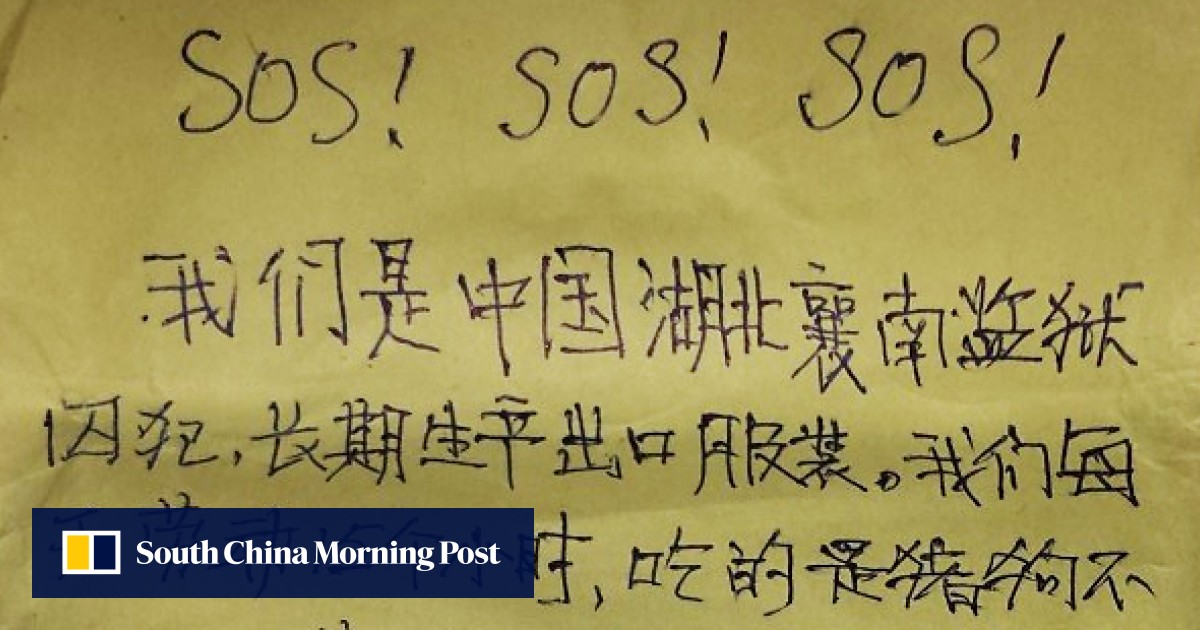 SOS! SOS! SOS!
我们是中国湖北襄南监狱
囚犯,长期生产出口服装。我们每
时,吃的是猪狗不
South China Morning Post